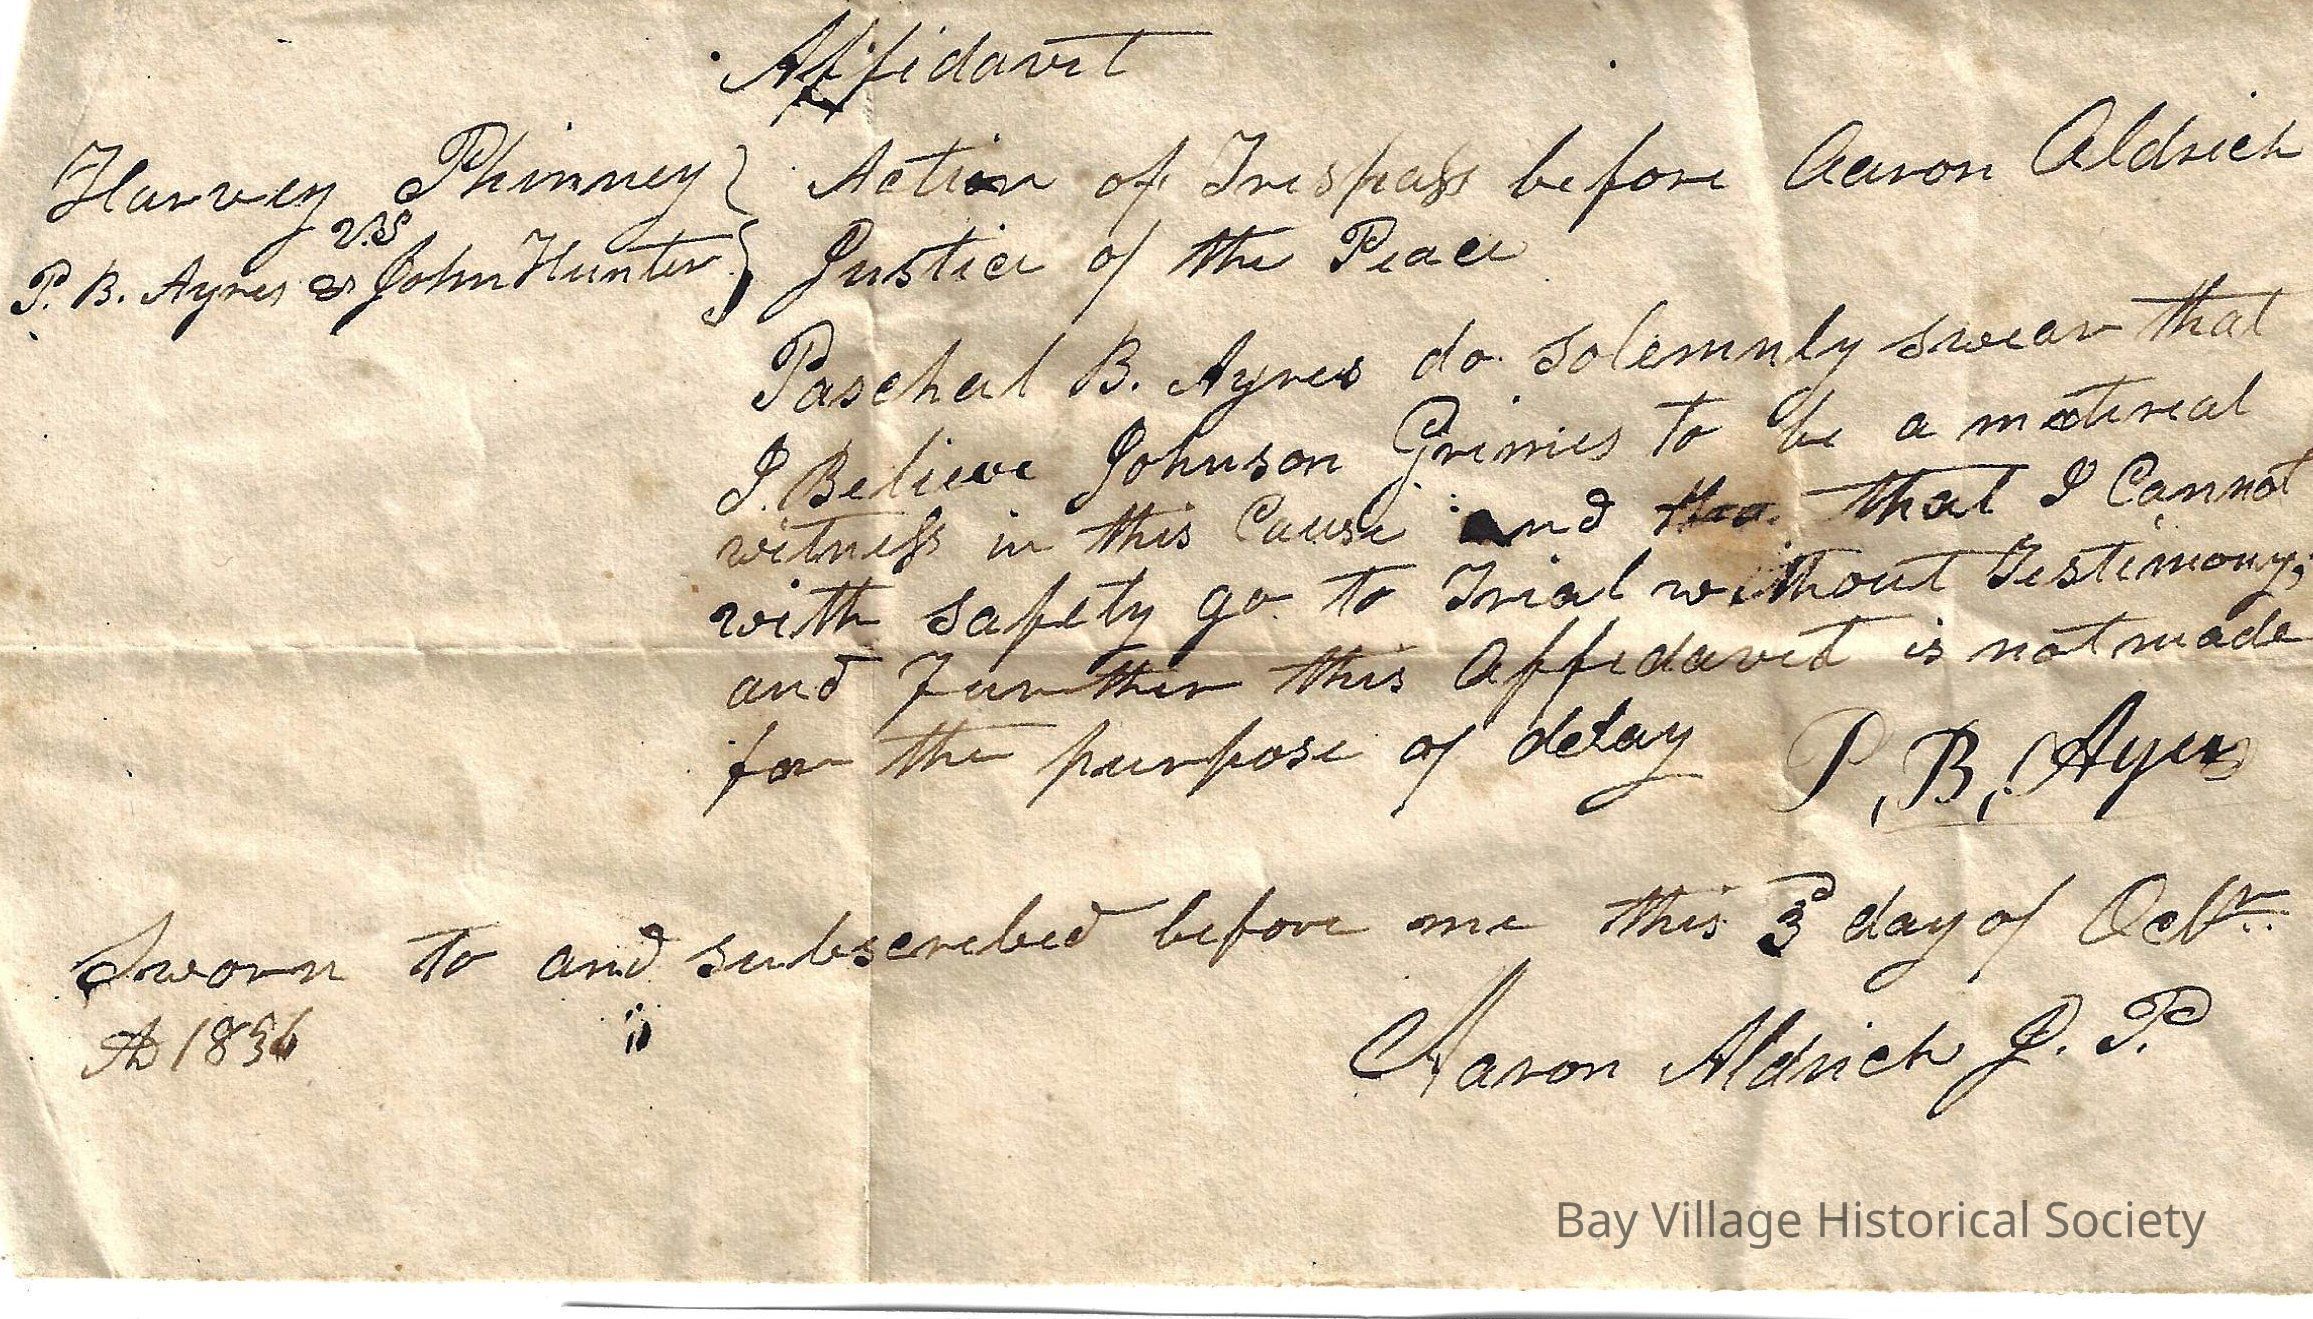 Affidavit
Harvey Phinney } Action of Trespass before Aaron Aldrich
vs
P. B. Ayres & John Hunter } Justice of the Peace
Paschal B. Ayres do solemnly swear that
I Believe Johnson Grimes to be a material
witness in this Cause and that I Cannot
with safety go to Trial without Testimony,
and Further this Affidavit is not made
for the purpose of delay P. B. Ayres
Sworn to and subscribed before me this 3d day of Octr.
AD 1836
Aaron Aldrich J. P.
Bay Village Historical Society